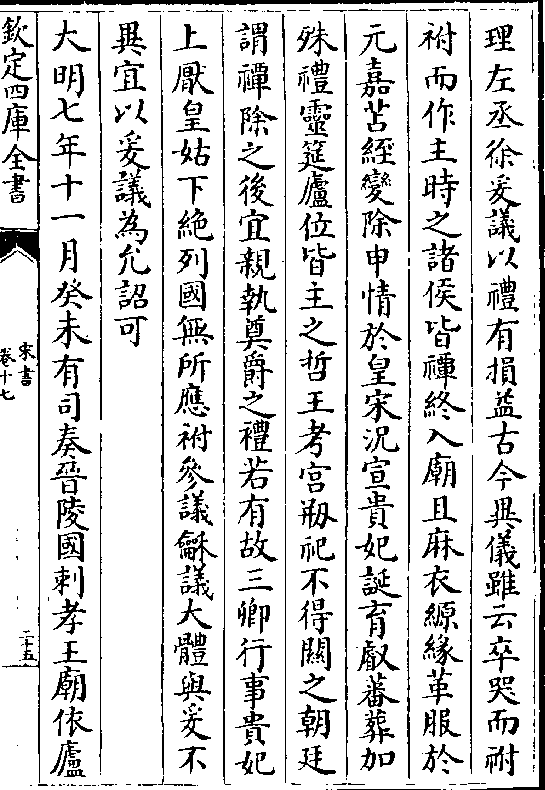 理左丞徐爰議以禮有損益古今異儀雖云卒哭而祔
祔而作主時之諸侯皆禫終入廟且麻衣縓緣革服於
元嘉苫絰變除申情於皇宋況宣貴妃誕育叡蕃葬加
殊禮靈筵廬位皆主之哲王考宫剏祀不得闗之朝廷
謂禫除之後宜親執奠爵之禮若有故三卿行事貴妃
上厭皇姑下絶列國無所應祔參議龢議大體與爰不
異宜以爰議為允詔可
大明七年十一月癸未有司奏晉陵國刺孝王廟依廬
欽定四庫全書
宋書
卷十七
二十五